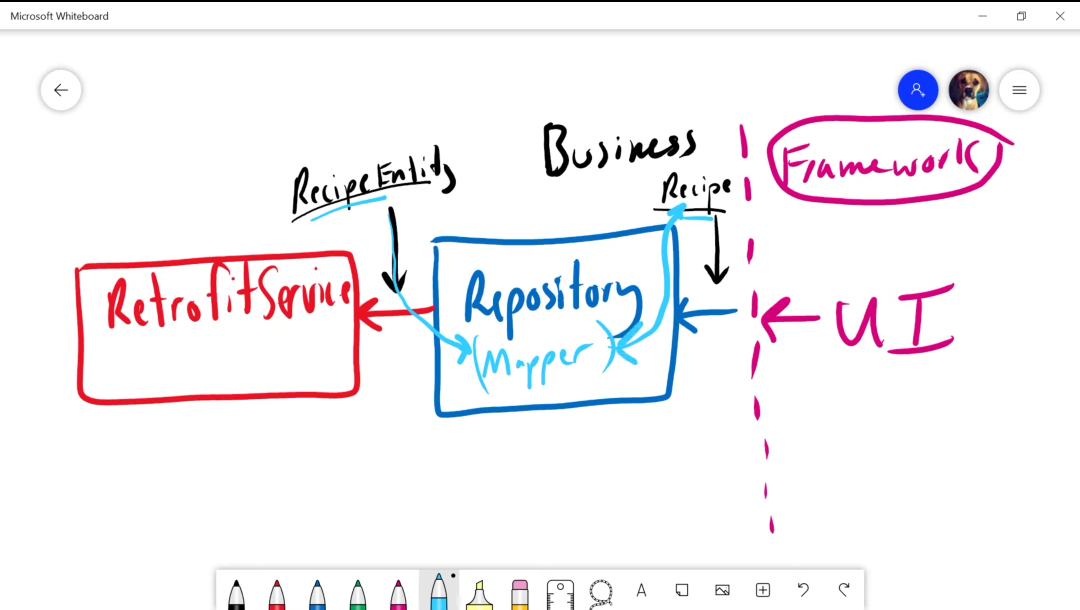 Microsoft Whiteboard
Business
Framework
RecipeEntity
Recipe
RetrofitService
Repository
(Mapper)
UI
A